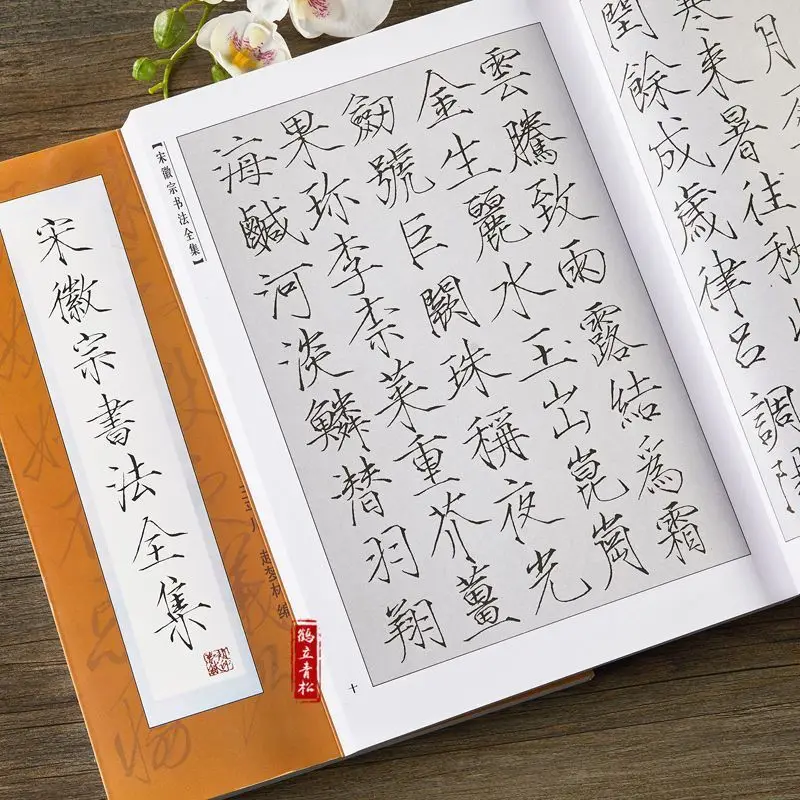 宋徽宗書法全集
王平川 赵梦林 编
【宋徽宗书法全集】
月
寒來暑往秋
閏餘成歲律呂調陽
雲騰致雨露結爲霜
金生麗水玉山崑崗
劒號巨闕珠稱夜光
果珍李柰菜重芥薑
海鹹河淡鱗潛羽翔
十
鹤立青松